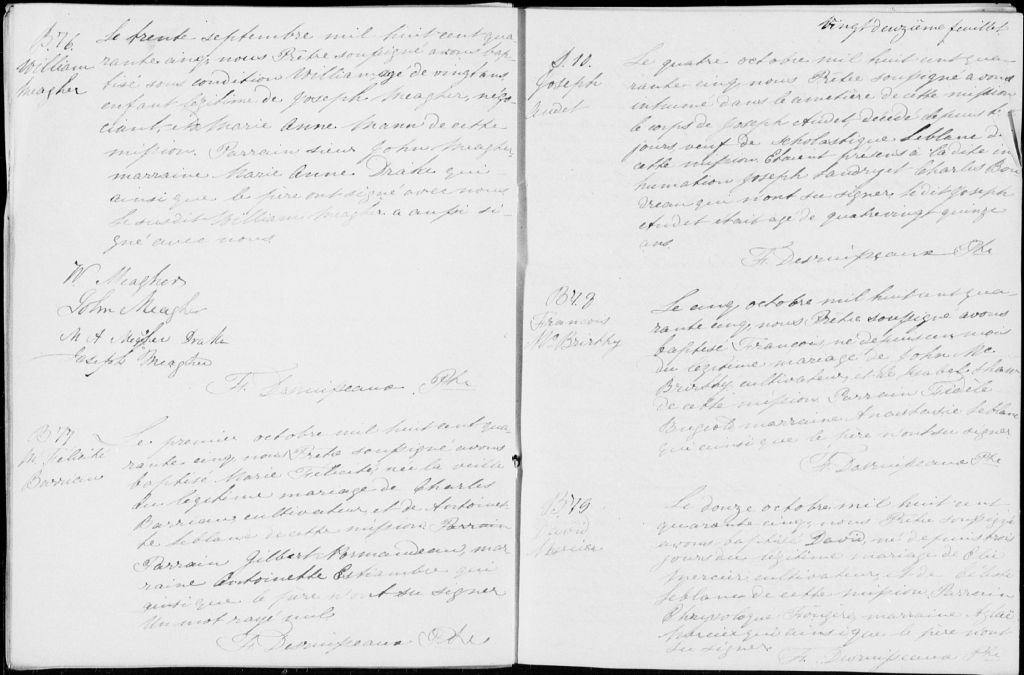 B.76.
William
Meagher
Le trente septembre mil huit cent qua
rante cinq, nous Prêtre soussigné avons bap
tisé sous condition William agé de vingt ans
enfant légitime de Joseph Meagher, négo
ciant, et de Marie Anne Mann de cette
mission. Parrain sieur John Meagher,
marraine Marie Anne Drake qui
ainsi que le père ont signé avec nous
le susdit William Meagher a aussi si-
gné avec nous
W Meagher
John Meagher
M A Meagher Drake
Joseph Meagher
F. Desruisseaux Ptre
B.77
M. Félicité
Barriau
Le premier octobre mil huit cent qua
rante cinq, nous Prêtre soussigné avons
baptisé Marie Félicité, née la veille
du légitime mariage de Charles
Barriau, cultivateur, et de Antoinet
te Leblanc de cette mission. Parrain
Parrain Gilbert Normandeau, mar
raine Antoinette Estiambre qui
ainsi que le père n'ont su signer
Un mot rayé nul.
F. Desruisseaux Ptre
Vingt deuxième feuillet
S. 10.
Joseph
Audet
Le quatre octobre mil huit cent qua-
rante cinq nous Prêtre soussigné avons
inhumé dans le cimetière de cette mission
le corps de Joseph Audet, décédé depuis
jours veuf de Scholastique Leblanc de
cette mission. Etaient présens à la dite in
humation Joseph Landry et Charles Bou
dreau qui n'ont su signer, le dit Joseph
Audet était agé de quatre vingt quinze
ans
F. Desruisseaux Ptre
B78
Francois
Mc Brirthy
Le cinq octobre mil huit cent qua-
rante cinq, nous Prêtre soussigné avons
baptisé Francois né depuis un mois
du légitime mariage de John Mc
Brirthy cultivateur, et de Isabel Shaw
de cette mission Parrain Fidèle
Bugeot marraine Anastasie Leblanc
qui ainsi que le père n'ont su signer
F. Desruisseaux Ptre
B.79
David
Mercier
Le douze octobre mil huit cent
quarante cinq, nous Prêtre soussigné
avons baptisé David, né depuis trois
jours du légitime mariage de Elie
Mercier cultivateur, et de
Leblanc de cette mission Parrain
Chrysologue marraine Aglaé
Mercier qui ainsi que le père n'ont
su signer
F. Desruisseaux Ptre